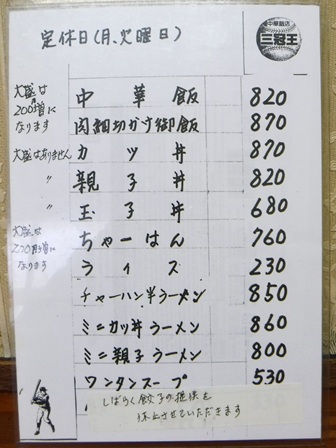 定休日(月、火曜日)
中華飯店
三冠王
大盛は
200円増に
なります
中華飯 820
肉細切かけ御飯 870
大盛はありません
カツ丼 870
〃 親子丼 820
〃 玉子丼 680
大盛は
200円増に
なります
ちゃーはん 760
ライス 230
チャーハン半ラーメン 850
ミニカツ丼ラーメン 860
ミニ親子ラーメン 800
ワンタンスープ 530
しばらく餃子の提供を
休止させていただきます